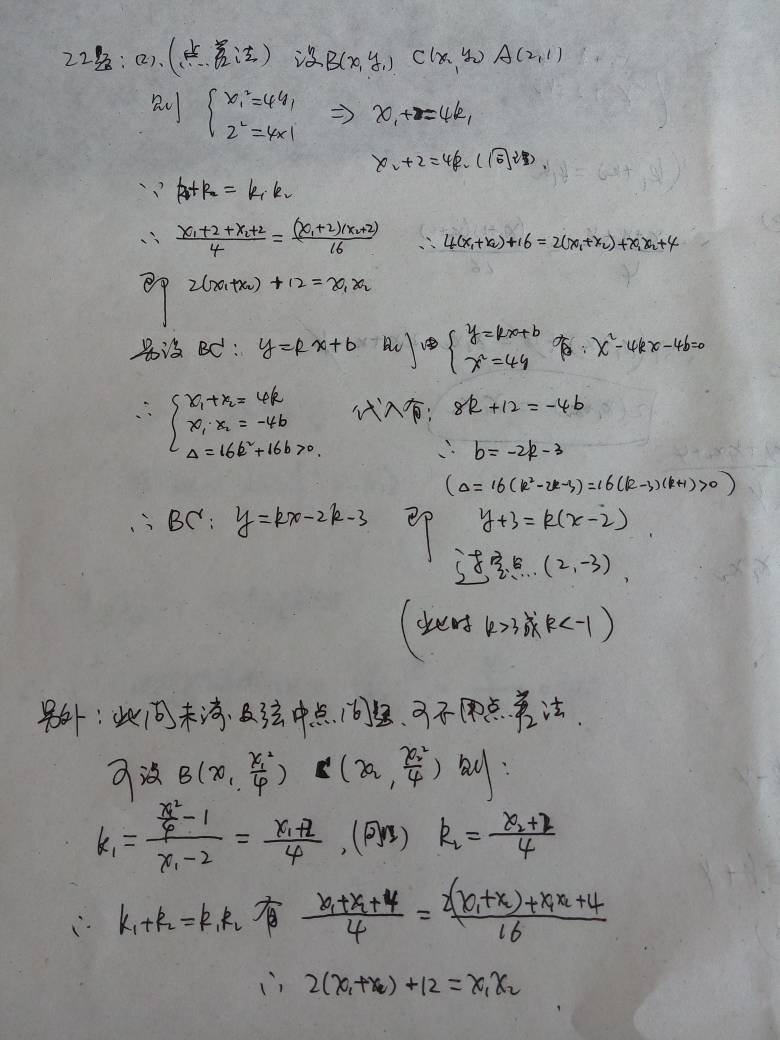 22题：(2)、(点差法) 设B(x₁,y₁) C(x₂,y₂) A(2,1)
则 { x₁²=4y₁ 2²=4×1 ⇒ x₁+2=4k₁
x₂+2=4k₂ (同理)
∵ k₁+k₂=k₁·k₂
∴ (x₁+2+x₂+2)/4 = (x₁+2)(x₂+2)/16 ∴ 4(x₁+x₂)+16=2(x₁+x₂)+x₁x₂+4
即 2(x₁+x₂)+12=x₁x₂
另设 BC: y=kx+b 则由 { y=kx+b x²=4y 有: x²-4kx-4b=0
∴ { x₁+x₂=4k x₁·x₂=-4b Δ=16k²+16b>0. 代入有: 8k+12=-4b
∴ b=-2k-3
(Δ=16(k²-2k-3)=16(k-3)(k+1)>0)
∴ BC: y=kx-2k-3 即 y+3=k(x-2).
过定点 (2,-3).
(此时 k>3或k<-1)
另外：此问未涉及弦中点问题、可不用点差法.
可设 B(x₁, x₁²/4) C(x₂, x₂²/4) 则:
k₁=(x₁²/4-1)/(x₁-2)=(x₁+2)/4, (同理) k₂=(x₂+2)/4
∴ k₁+k₂=k₁k₂ 有 (x₁+x₂+4)/4=(2(x₁+x₂)+x₁x₂+4)/16
∴ 2(x₁+x₂)+12=x₁x₂